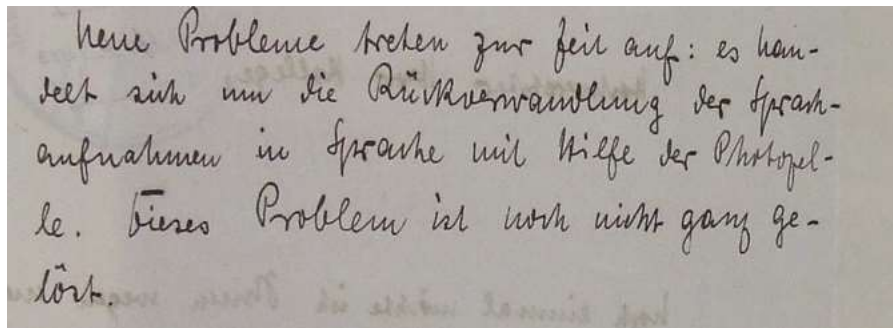 Neue Probleme treten zur Zeit auf: es han-
delt sich um die Rückverwandlung der Sprach-
aufnahmen in Sprache mit Hilfe der Photozel-
le. Dieses Problem ist noch nicht ganz ge-
löst.